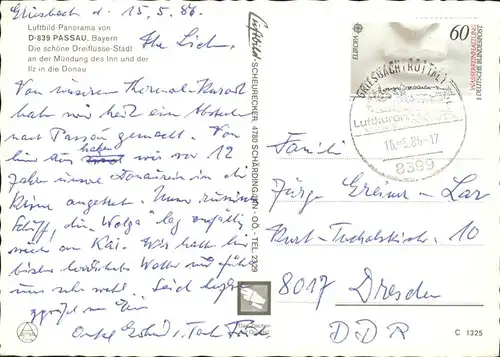 Griesbach d. 15.5.86
Luftbild-Panorama von
D-839 PASSAU, Bayern
Die schöne Dreiflüsse-Stadt
an der Mündung des Inn und der
Ilz in die Donau
Ihr Lieben,
Von unserem Thermal-Kurort
haben wir heut einen Abstecher
nach Passau gemacht. Von
hier aus haben wir vor 12
Jahren unsere Donaureise in die
angetreten. Unser russisches
Schiff, die "Wolga" lag zufällig
auch am Kai. Wir hatten bis
Wetter und fühlen
uns sehr wohl. Seid herzlich
gegrüßt von
Onkel u. Tante
Luftbild SCHEURECKER, 4780 SCHÄRDING/INN - OÖ. - TEL 2329
EUROPA
60
DEUTSCHE BUNDESPOST
GRIESBACH I ROTTAL
Luftkurort
16.-5.86-17
8399
Familie
Jürgen Greiner-Lar
Kurt-Tucholskystr. 10
8017 Dresden
DDR
C 1325